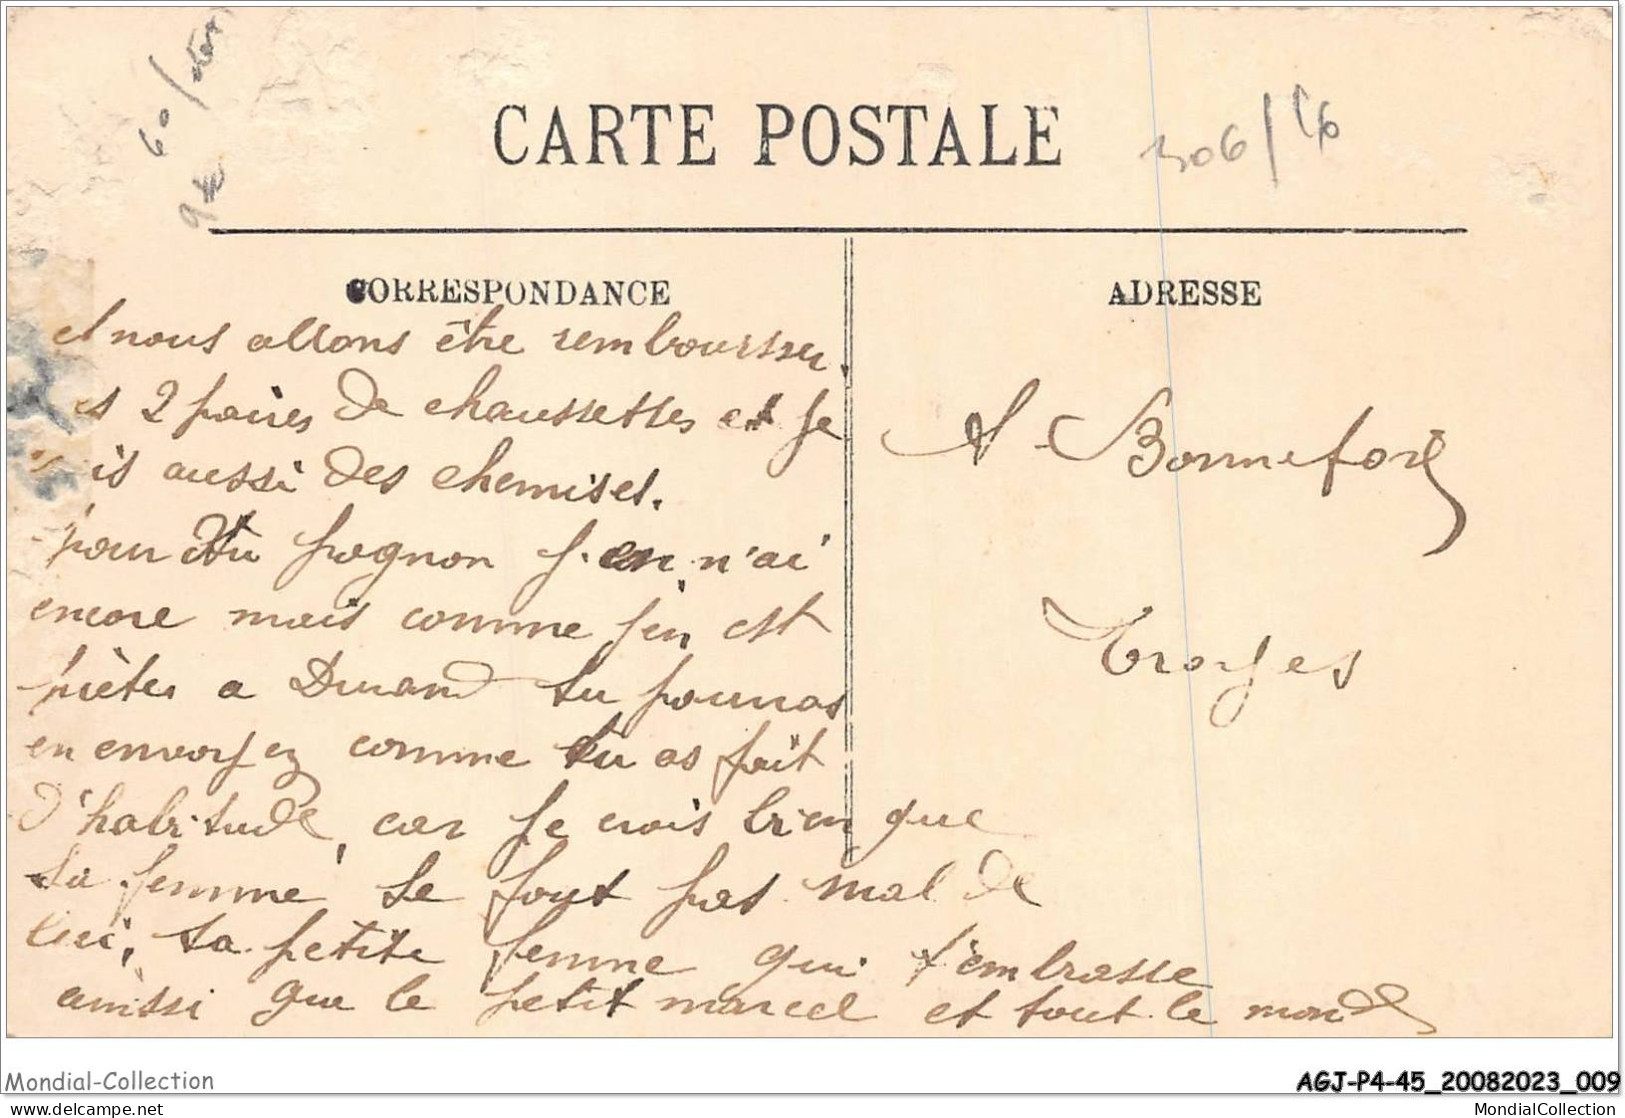 CARTE POSTALE
306/
CORRESPONDANCE
ADRESSE
et nous allons être remboursser
2 paires de chaussettes et je
is aussi des chemises.
pour du pognon j'en n'ai
encore mais comme j'en est
prèter a Durand tu pourras
en envoyez comme tu as fait
d'habitude, car je crois bien que
sa femme se fout pas mal de
lui, ta petite femme qui t'embrasse
ainssi que le petit marcel et tout le monde
Bonnefon
Troyes
Mondial-Collection
AGJ-P4-45_20082023_009
www.delcampe.net
MondialCollection